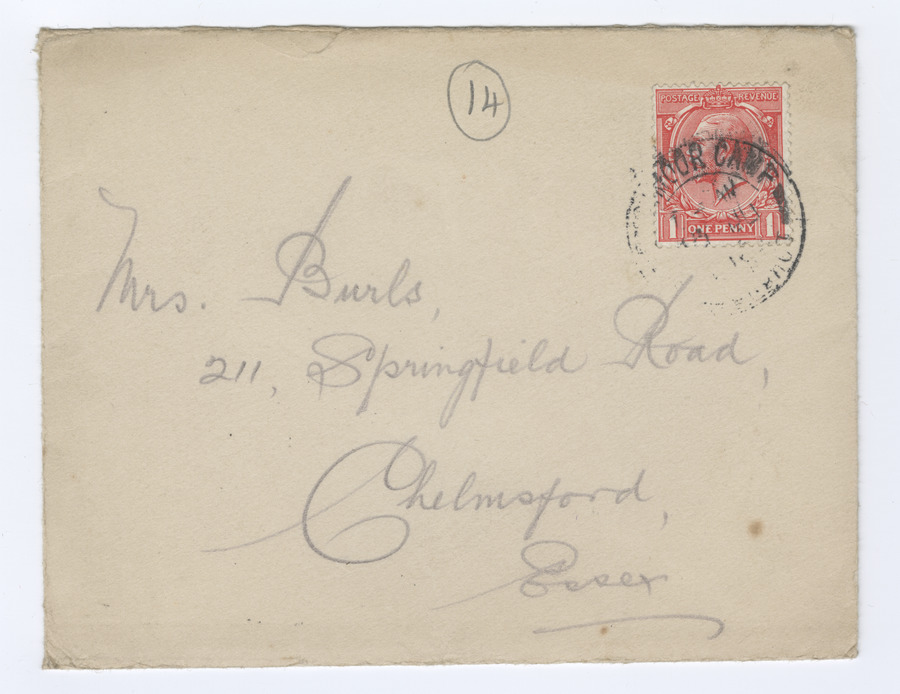 14
POSTAGE REVENUE
MOOR CAMP
1 ONE PENNY 1
Mrs. Burls,
211, Springfield Road,
Chelmsford,
Essex